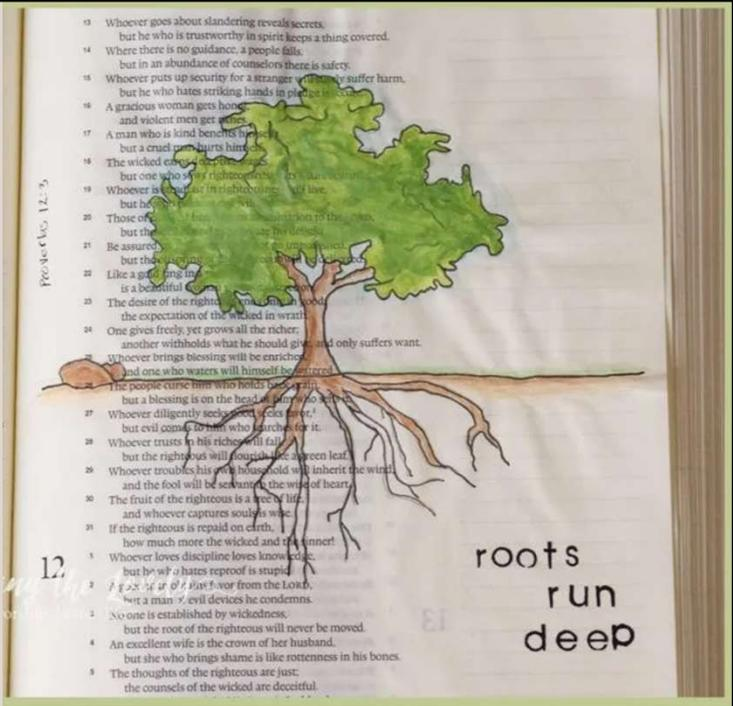 13 Whoever goes about slandering reveals secrets,
but he who is trustworthy in spirit keeps a thing covered.
14 Where there is no guidance, a people falls,
but in an abundance of counselors there is safety.
15 Whoever puts up security for a stranger will surely suffer harm,
but he who hates striking hands in pledge is secure.
16 A gracious woman gets honor,
and violent men get riches.
17 A man who is kind benefits himself,
but a cruel man hurts himself.
18 The wicked earns deceptive wages,
but one who sows righteousness gets a
19 Whoever is steadfast in righteousness will live,
but he
20 Those of to the LORD,
but his delight.
21 Be assured, will not go unpunished,
but the offspring of the will be delivered.
22 Like a gold ring in a
is a beautiful
23 The desire of the righteous ends only in good;
the expectation of the wicked in wrath.
24 One gives freely, yet grows all the richer;
another withholds what he should give, and only suffers want.
25 Whoever brings blessing will be enriched,
and one who waters will himself be watered.
26 The people curse him who holds back grain,
but a blessing is on the head of him who sells it.
27 Whoever diligently seeks good seeks favor,
but evil comes to him who searches for it.
28 Whoever trusts in his riches will fall,
but the righteous will flourish like a green leaf.
29 Whoever troubles his own household will inherit the wind,
and the fool will be servant to the wise of heart.
30 The fruit of the righteous is a tree of life,
and whoever captures souls is wise.
31 If the righteous is repaid on earth,
how much more the wicked and the sinner!
12
1 Whoever loves discipline loves knowledge,
but he who hates reproof is stupid.
2 A good man obtains favor from the LORD,
but a man of evil devices he condemns.
3 No one is established by wickedness,
but the root of the righteous will never be moved.
4 An excellent wife is the crown of her husband,
but she who brings shame is like rottenness in his bones.
5 The thoughts of the righteous are just;
the counsels of the wicked are deceitful.
Proverbs 12:3
roots
run
deep
13
the Lovely